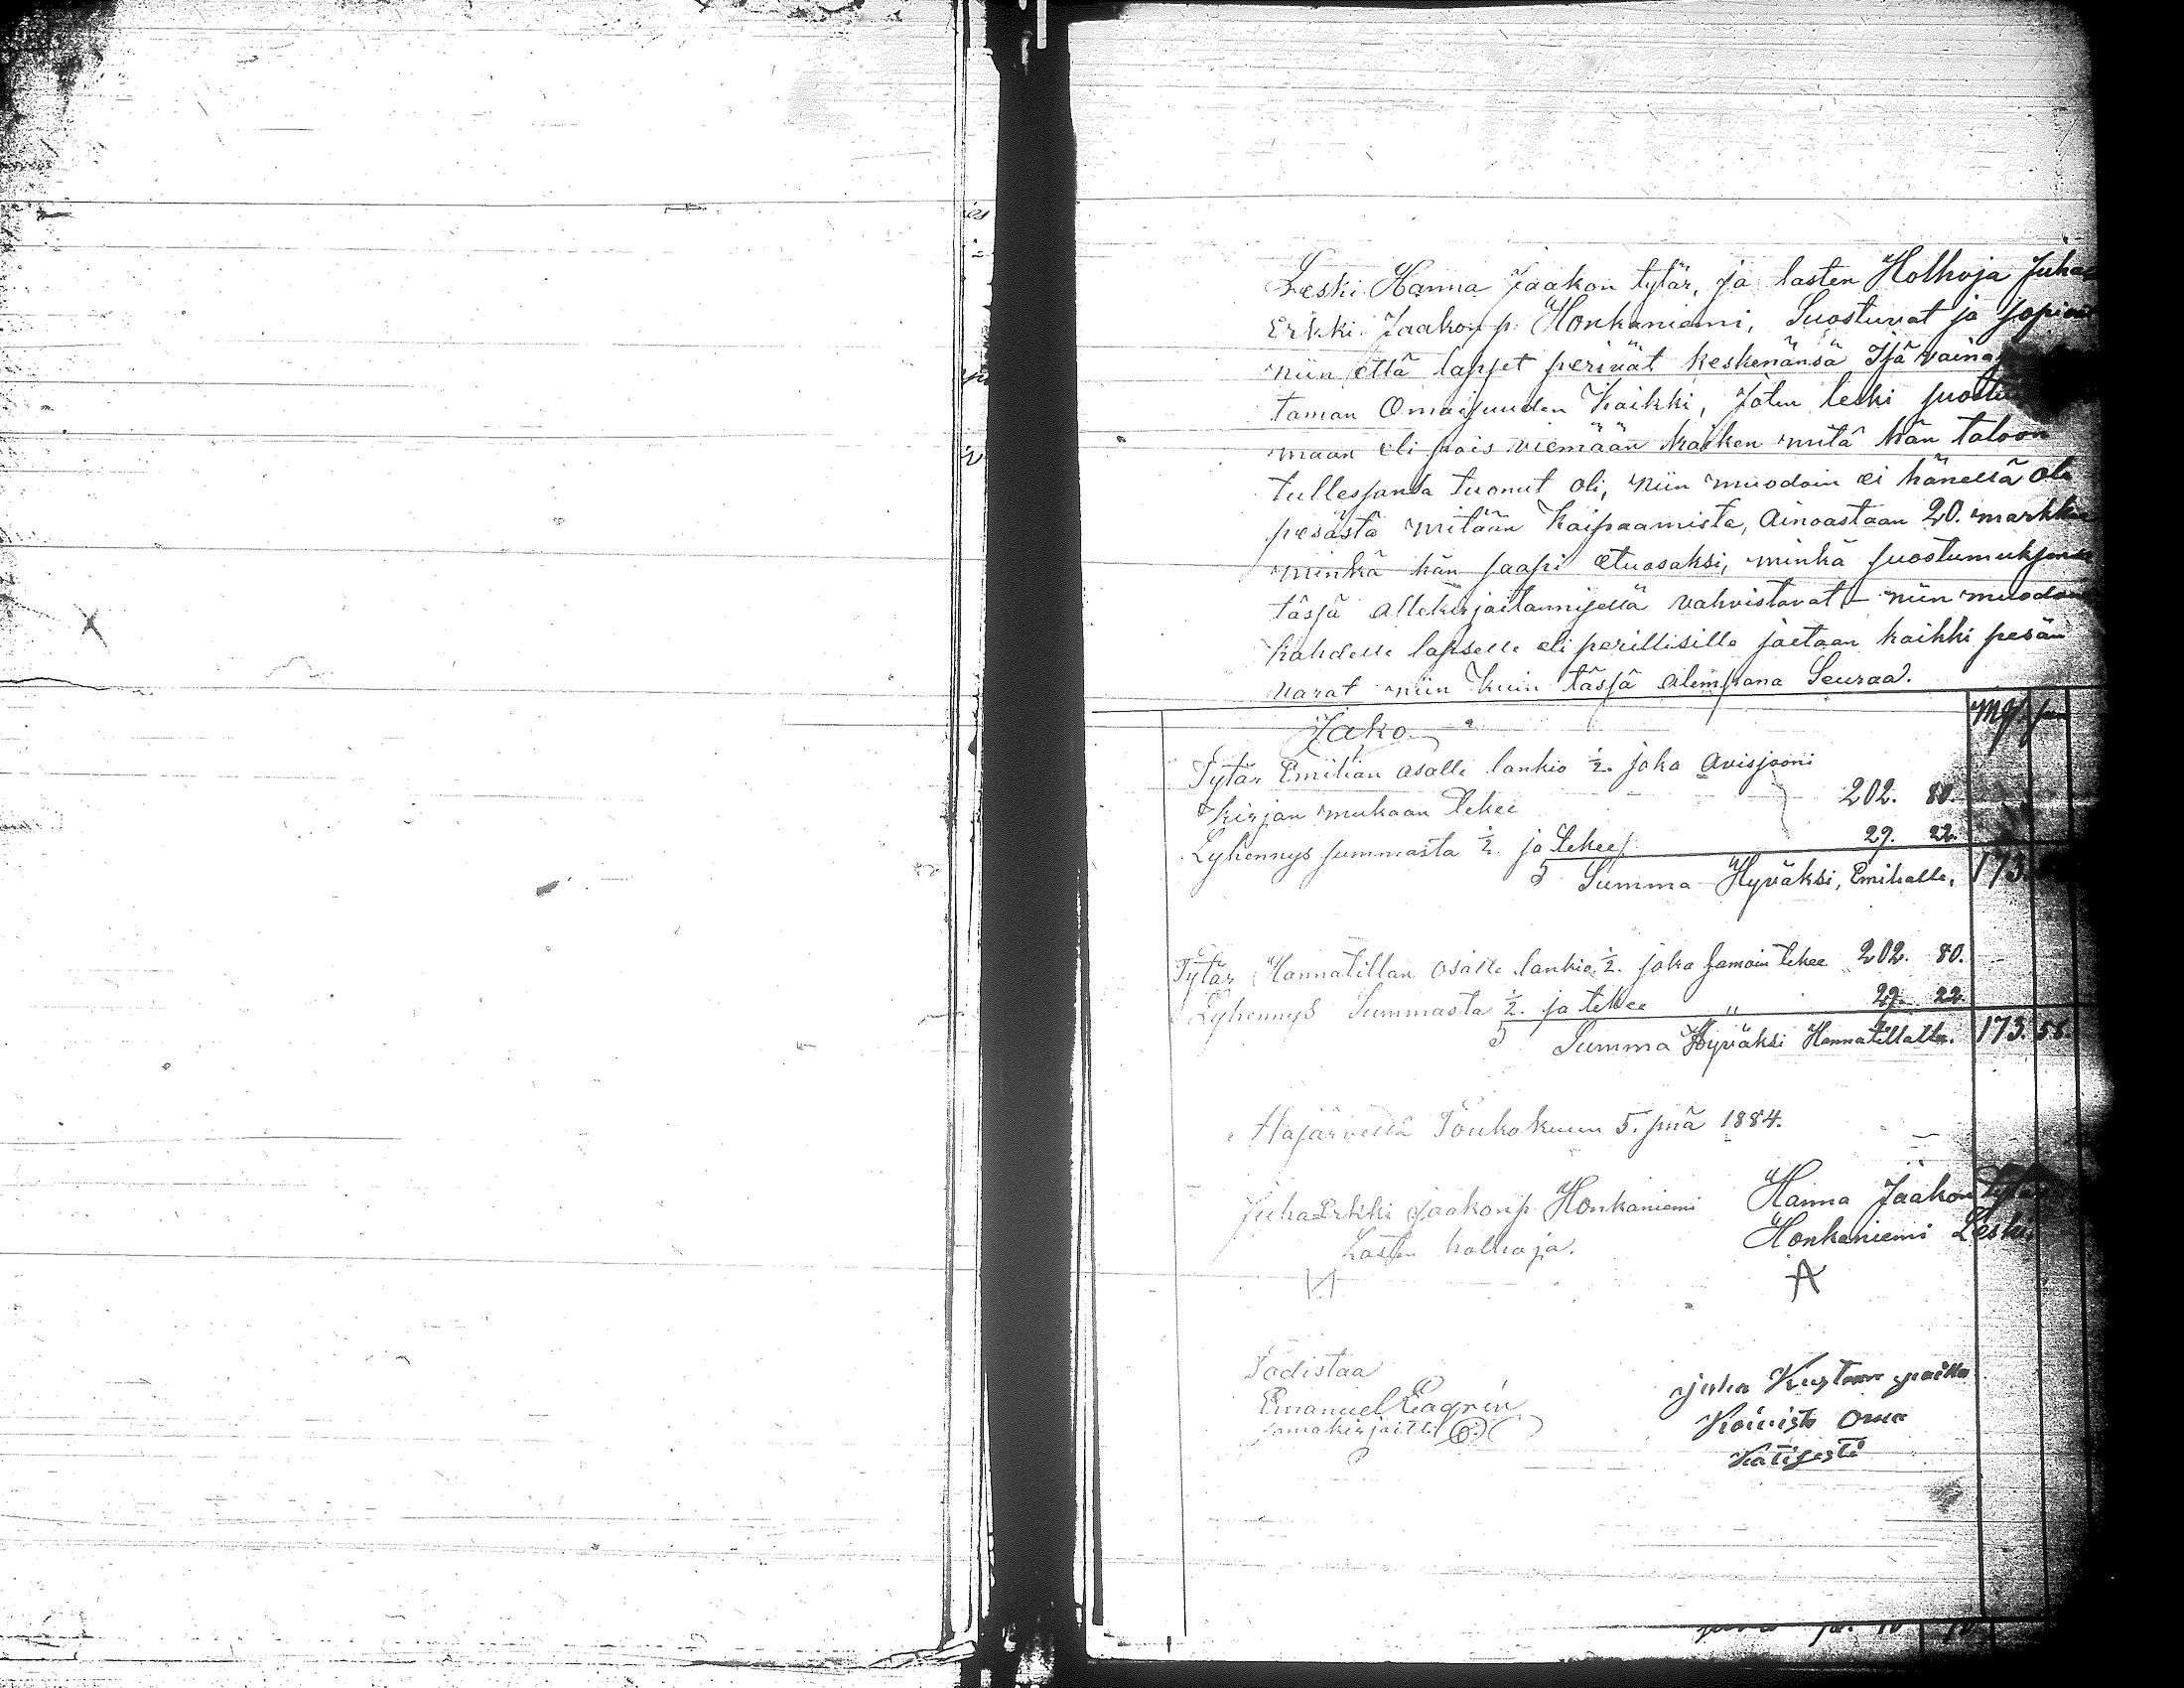 Leski Hanna Jaakon tytär, ja lasten Holhoja Juha
Erkki Jaakon p. Honkaniemi, Suostuvat ja sopivat
niin että lapset perivät keskenänsä Isä vaina
taman Omaisuuden Kaikki, Joten leski suostu
maan eli pois viemään kaiken mitä hän taloon
tullessansa tuonut oli, niin muodoin ei hänellä ole
pesästä mitään Kaipaamista, ainoastaan 20. markkaa
minkä hän saapi etuosaksi, minkä suostumuksensa
tässä allekirjoitannisellä vahvistavat – niin muodoin
kahdelle lapselle eli perillisille jaetaan kaikki pesän
varat niin kuin tässä alempana Seuraa.
Jako Mf. pn
Tytär Emilian osalle lankio ½. joka avisjooni
kirjan mukaan tekee 202. 80.
Lyhennys summasta ½. ja tekee 29. 22.
Summa Hyväksi, Emilialle, 173
Tytär Hannatillan osalle lankio ½. joka samoin tekee 202. 80.
Lyhennys Summasta ½. ja tekee „ 29. 22.
Summa Hyväksi Hannatillalle. 173. 58.
Alajärvellä Toukokuun 5. pnä 1884.
Juha Erkki Jaakonp. Honkaniemi Hanna Jaakon Tytär
Lasten holhoja. Honkaniemi Leski.
Todistaa
Emanuel Lagrén Juha Kustaan poika
sama kirjoitti Koivisto oma
Kätisesti